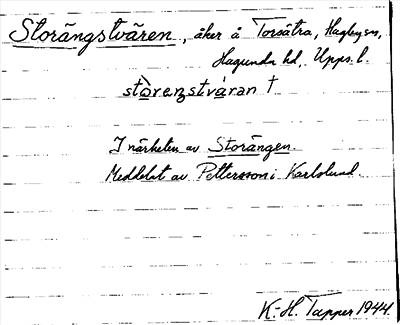 Storängstvären, åker å Torsätra, Hagbysn,
Hagunda hd, Upps. l.
stòrenzstvàran †
I närheten av Storängen.
Meddelat av Pettersson i Karlslund.
K. H. Tapper 1944.